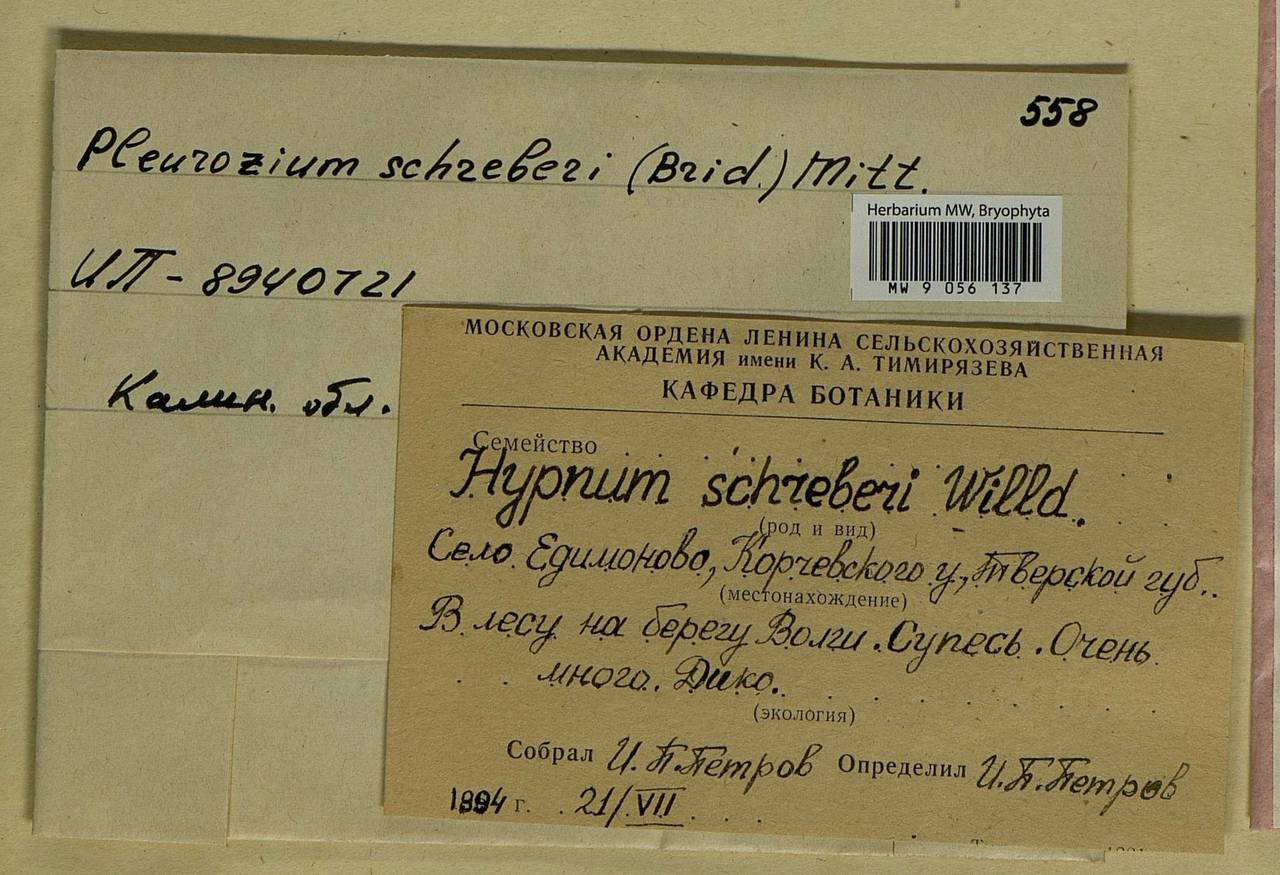 558
Pleurozium schreberi (Brid.) Mitt.
Herbarium MW, Bryophyta
MW 9 056 137
ИП - 8940721
Калин. обл.
МОСКОВСКАЯ ОРДЕНА ЛЕНИНА СЕЛЬСКОХОЗЯЙСТВЕННАЯ
АКАДЕМИЯ имени К. А. ТИМИРЯЗЕВА
КАФЕДРА БОТАНИКИ
Семейство
Hypnum schreberi Willd.
(род и вид)
Село Едимоново, Корчевского у, Тверской губ..
(местонахождение)
В лесу на берегу Волги. Супесь. Очень
много. Дико.
(экология)
Собрал И.П.Петров Определил И.П.Петров
1894 г. 21/VII